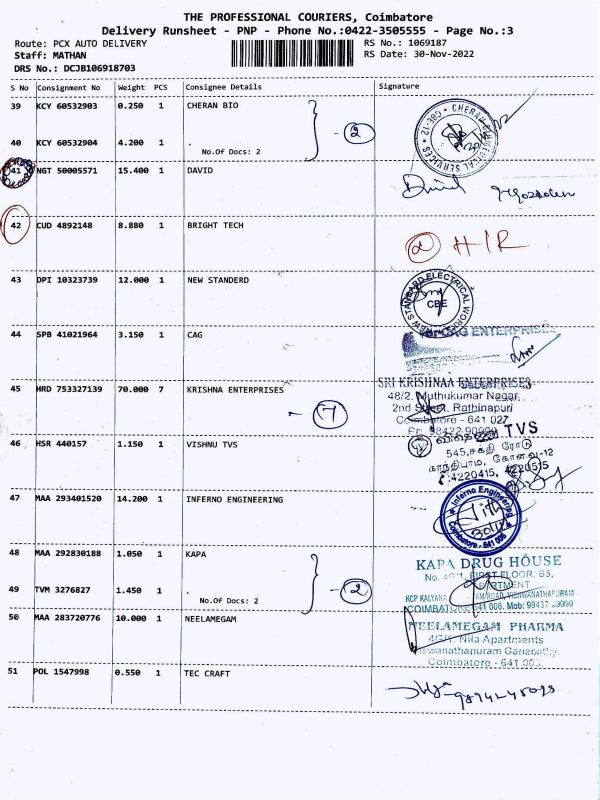 THE PROFESSIONAL COURIERS, Coimbatore
Delivery Runsheet - PNP - Phone No.:0422-3505555 - Page No.:3
Route: PCX AUTO DELIVERY RS No.: 1069187
Staff: MATHAN RS Date: 30-Nov-2022
DRS No.: DCJB106918703
S No Consignment No Weight PCS Consignee Details Signature
39 KCY 60532903 0.250 1 CHERAN BIO
2
40 KCY 60532904 4.200 1 .
No.Of Docs: 2
41 NGT 50005571 15.400 1 DAVID
David
42 CUD 4892148 8.880 1 BRIGHT TECH
H/R
43 DPI 10323739 12.000 1 NEW STANDERD
NEW STANDARD ELECTRICAL WORKS
CBE
44 SPB 41021964 3.150 1 CAG
CAG ENTERPRISES
45 HRD 753327139 70.000 7 KRISHNA ENTERPRISES
7
SRI KRISHNAA ENTERPRISES
48/2, Muthukumar Nagar,
2nd Street, Rathinapuri
Coimbatore - 641 027
46 HSR 440157 1.150 1 VISHNU TVS
TVS
545, சக்தி ரோடு
காந்திபுரம், கோவை-12
:4220415, 4220515
47 MAA 293401520 14.200 1 INFERNO ENGINEERING
Inferno Engineering
Coimbatore - 641 006
48 MAA 292830188 1.050 1 KAPA
KAPA DRUG HOUSE
FIRST FLOOR, 85,
2
49 TVM 3276827 1.450 1 .
No.Of Docs: 2
KCP KALYANA
COIMBATORE 641 006, Mob: 99437
50 MAA 283720776 10.000 1 NEELAMEGAM
NEELAMEGAM PHARMA
4/3/1, Nila Apartments
Viswanathapuram Ganapathy,
Coimbatore - 641 006
51 POL 1547998 0.550 1 TEC CRAFT